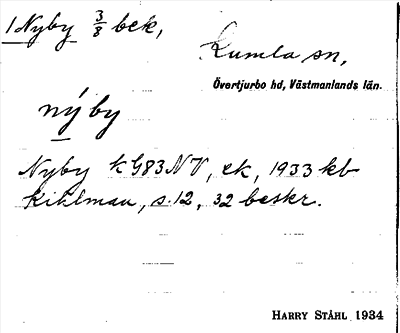 1 Nyby 3/8 bek,
Kumla sn,
Övertjurbo hd, Västmanlands län.
nýby
Nyby k G83NV, ek, 1933 kb
Kihlman, s. 12, 32 beskr.
HARRY STÅHL 1934